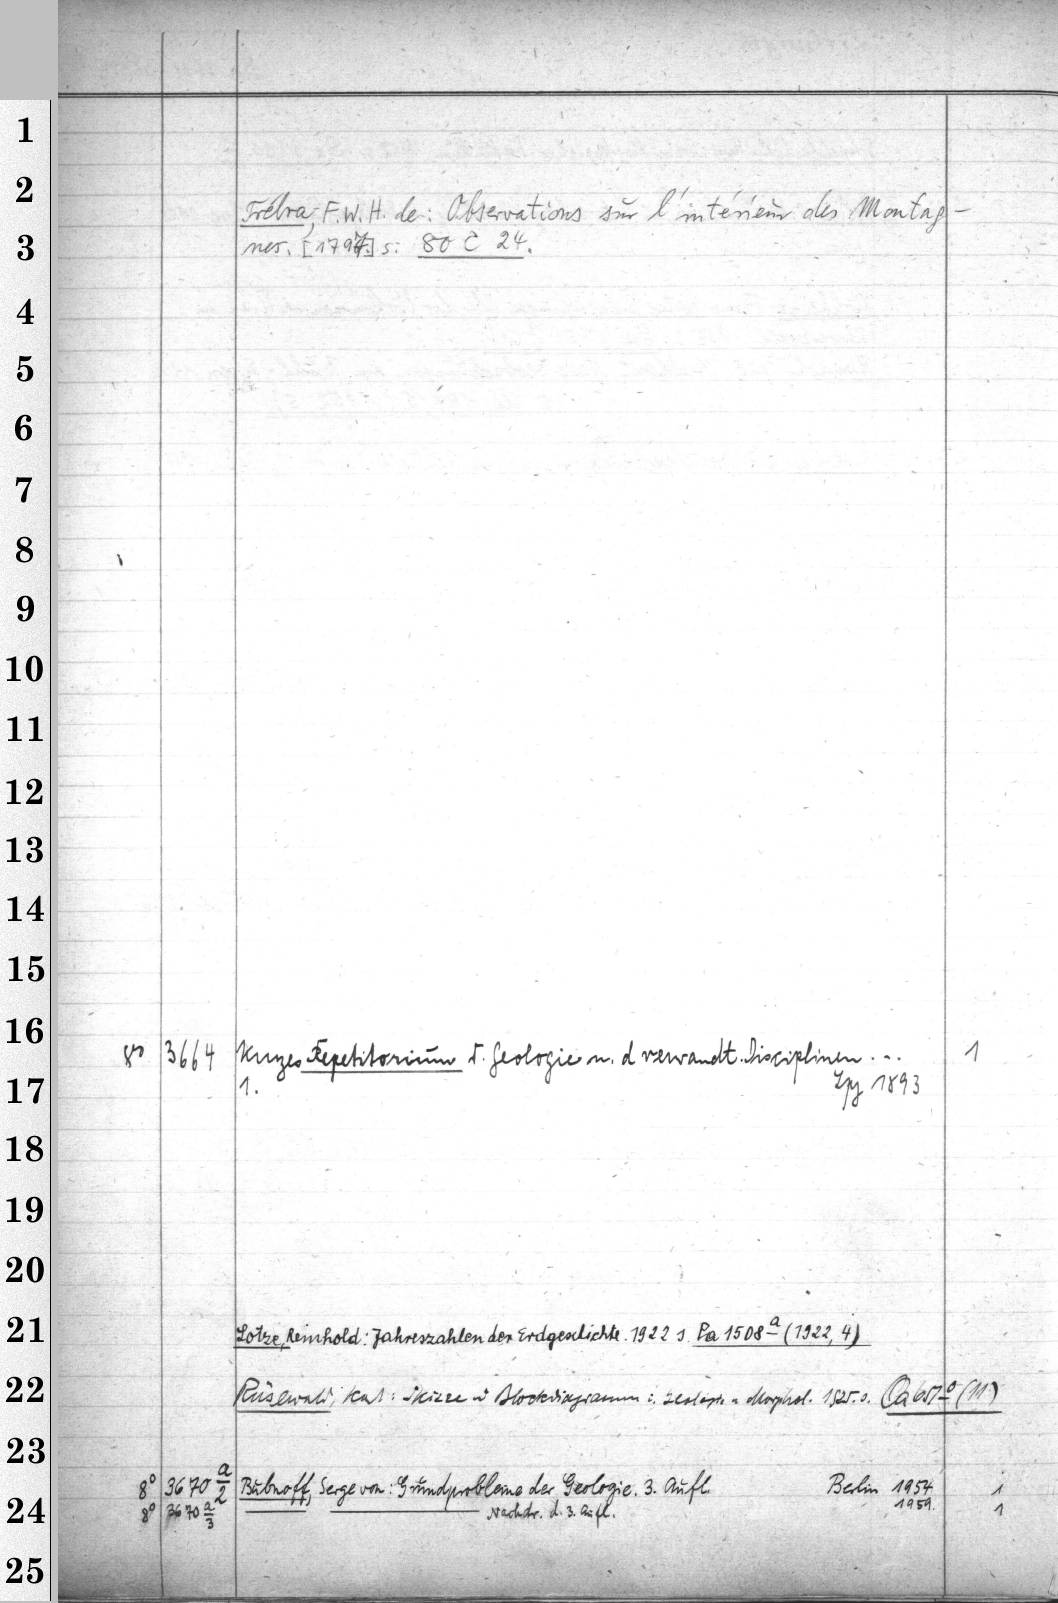 1
2
Trébra, F.W.H. de: Observations sur l'intérieur des Montag-
3
nes. [1797] s: 80 C 24.
4
5
6
7
8
9
10
11
12
13
14
15
16
8° 3664 Kurzes Repetitorium d. Geologie u. d verwandt. Disciplinen ... 1
17
1. Lpz 1893
18
19
20
21
Lotze, Reinhold: Jahreszahlen der Erdgeschichte. 1922 s. Pa 1508 a (1922, 4)
22
Rüsewald, Karl: Skizze u Blockdiagramm i. Geolog. u Morphol. 1925. s.
23
8° 3670 a/2 Bubnoff, Serge von: Grundprobleme der Geologie. 3. Aufl. Berlin 1954 1
24
8° 3670 a/3 Nachdr. d. 3. Aufl. 1959. 1
25